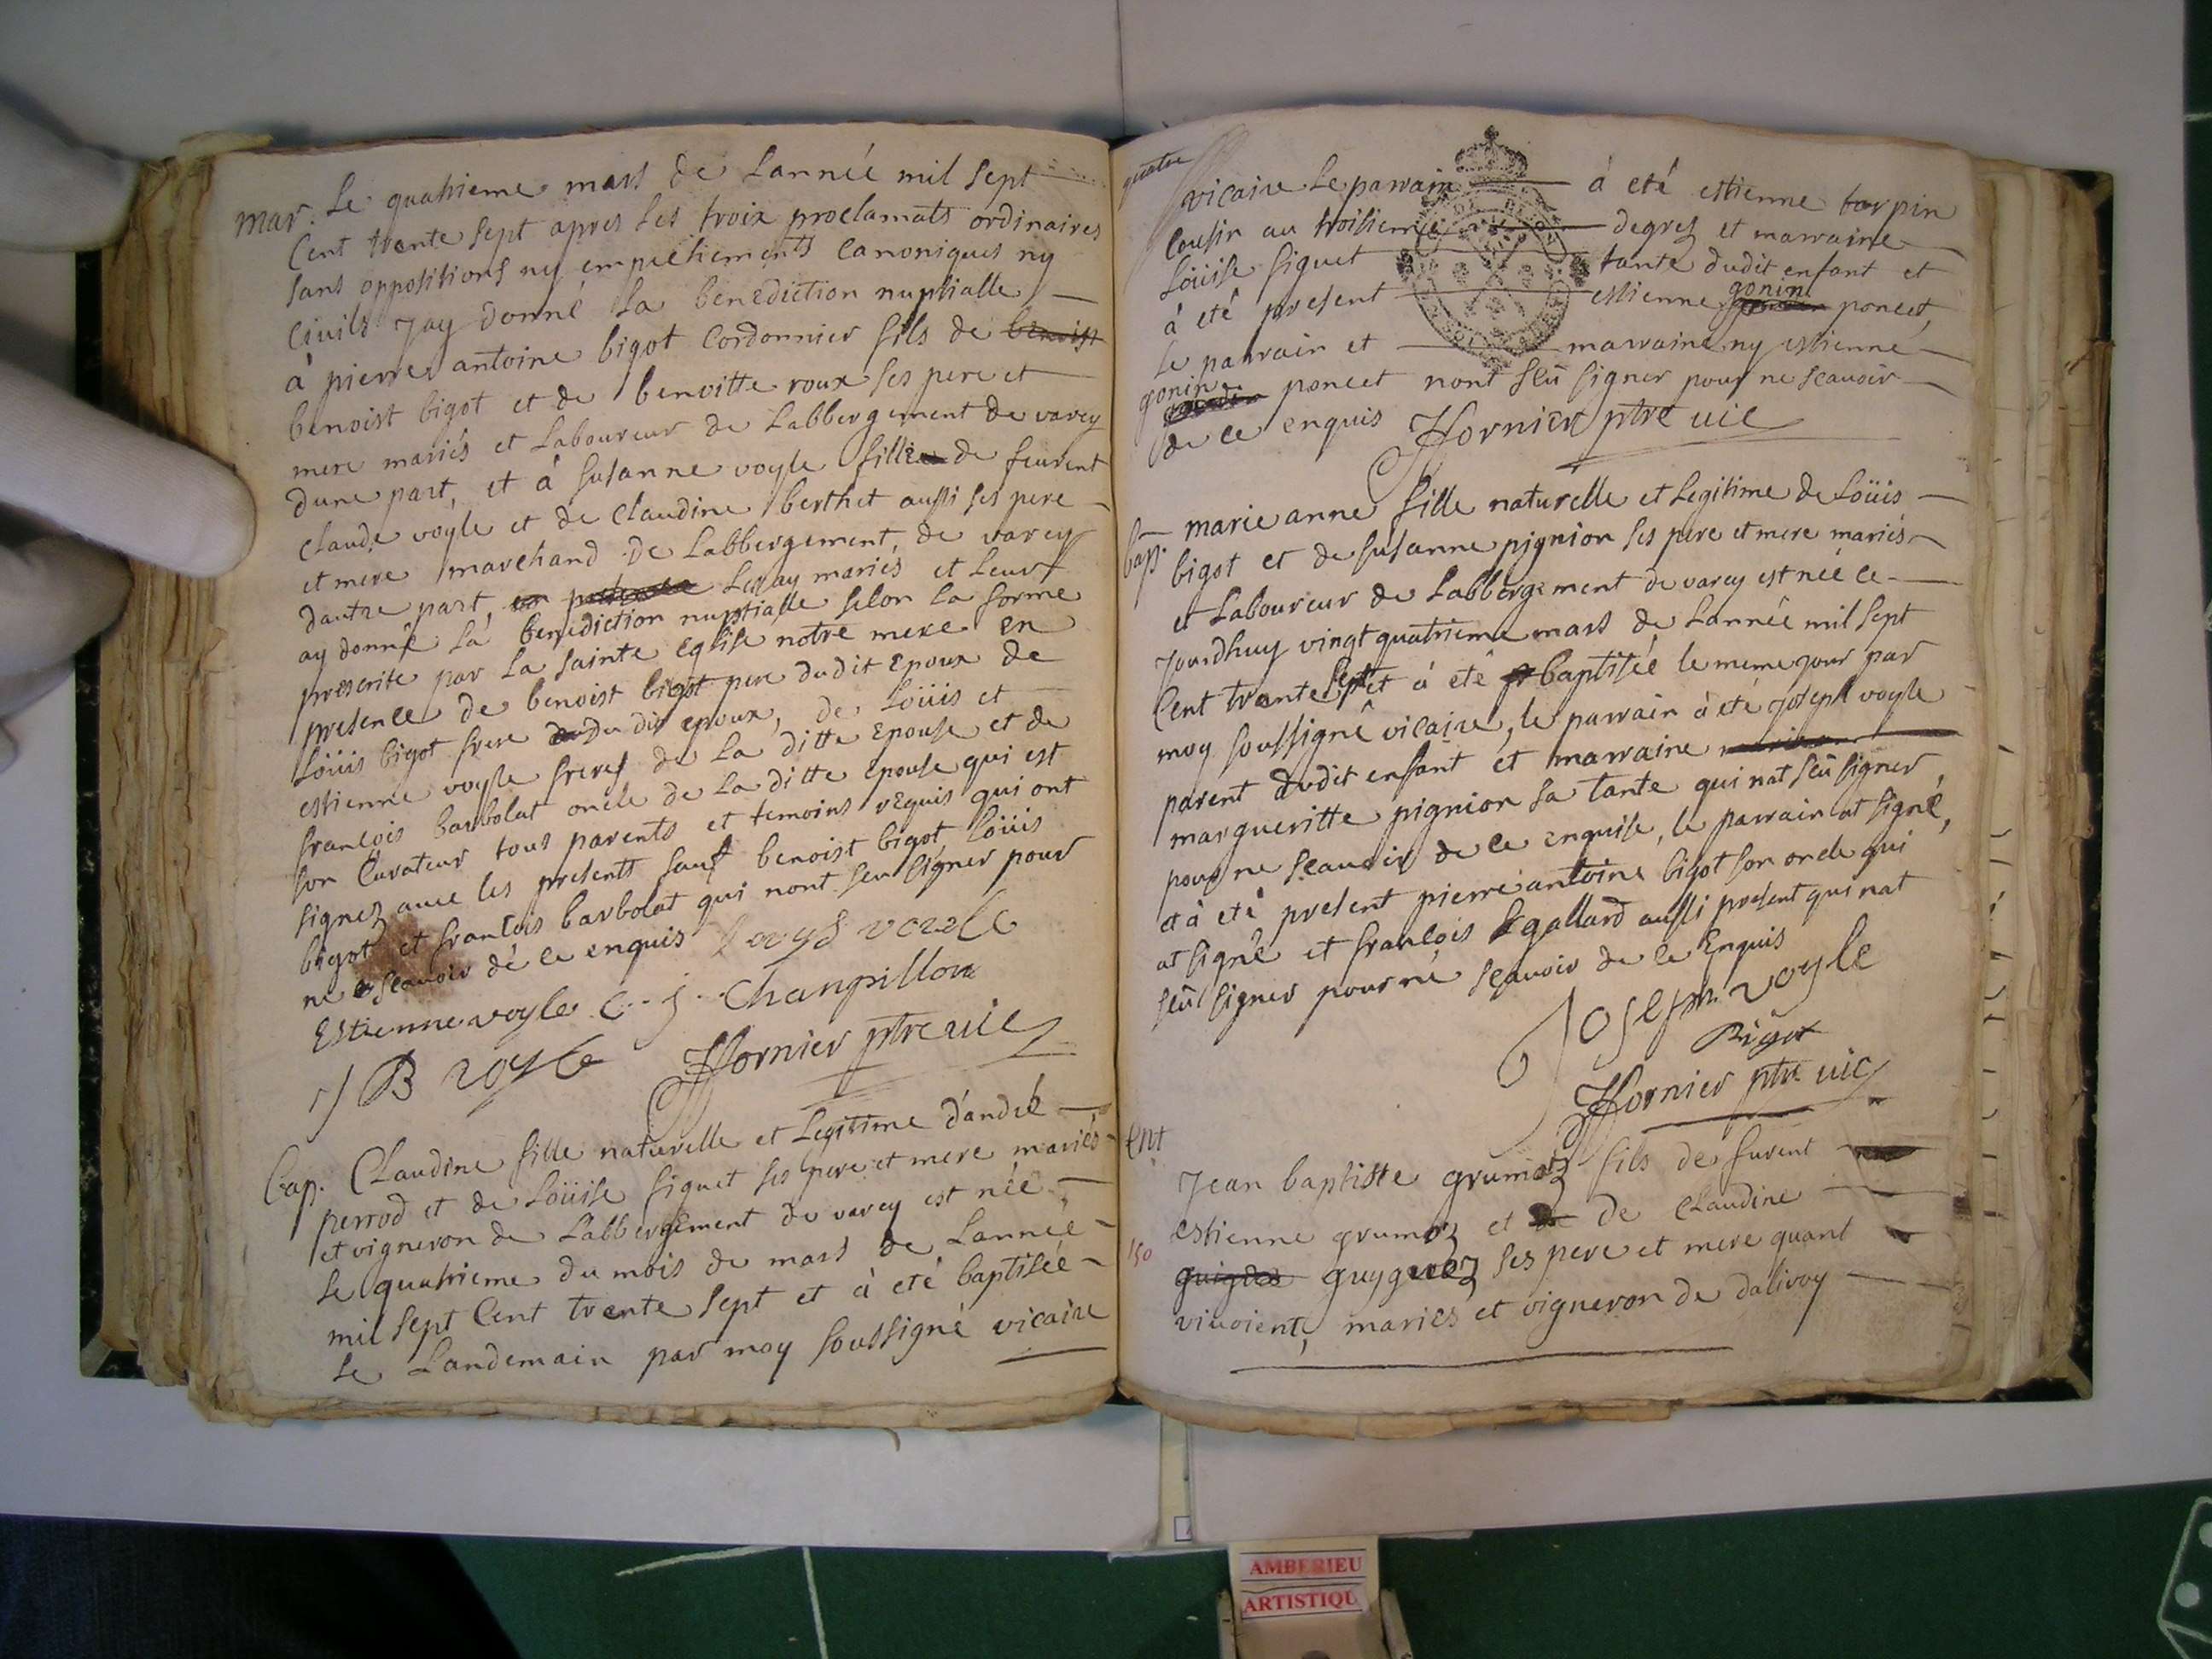 mar. Le quatrieme mars de Lannée mil sept
Cent trente sept apres les troix proclamats ordinaires
sans oppositions ny empechements Canoniques ny
Civils Jay donné la benediction nuptialle
à pierre antoine bigot Cordonnier fils de benoist
benoist bigot et de benoitte roux ses pere et
mere mariés et Laboureur de Labbergement de varey
dune part, et à susanne voyle fille de feurent
Claude voyle et de Claudine berthet aussi ses pere
et mere marchand de Labbergement, de varey
dautre part, Les ay mariés et Leur
ay donné la benediction nuptialle selon la forme
prescrite par la sainte Eglise notre mere en
presence de benoist bigot pere dudit Epoux de
Loüis bigot frere du dit epoux, de Loüis et
estienne voyle freres de La ditte Epouse et de
francois barbolat oncle de La ditte epouse qui est
son Curateur tous parents et temoins requis qui ont
signez avec les presents sauf benoist bigot Loüis
bigot et francois barbolat qui nont seu signer pour
ne scavoir de ce enquis Louys voyle
Estienne voyle C. j. Changillon
J B voyle Hornier ptre vic
bap. Claudine fille naturelle et Legitime d'andré
perrod et de Loüise siguet ses pere et mere mariés
et vigneron de Labbergement de varey est née
le quatrieme du mois de mars de Lannée
mil sept Cent trente sept et à eté baptisée
le Landemain par moy soussigné vicaire
quatre
vicaire Le parrain à eté estienne tarpin
Cousin au troisieme degrez et marraine
Loüise siguet tante dudit enfant et
gonin
à eté present estienne poncet,
le parrain et marraine ny estienne
gonin poncet nont sçû signer pour ne scavoir
de ce enquis Hornier ptre vic
bap. marie anne fille naturelle et Legitime de Loüis
bigot et de susanne pignion ses pere et mere mariés
et Laboureur de Labbergement de varey est née ce
Jourdhuy vingt quatrieme mars de Lannée mil sept
Cent trente sept et à eté baptisée le meme jour par
moy soussigné vicaire, le parrain à eté Joseph voyle
parent dudit enfant et marraine
margueritte pignion sa tante qui nat sçû signer,
pour ne scavoir de ce enquise, le parrain at signé,
et à eté present pierre antoine bigot son oncle qui
at signé et francois gallard aussi present qui nat
sçû signer pour ne sçavoir de ce Enquis
Joseph voyle
Bigot
Hornier ptre vic
Ent
Jean baptiste grumoz fils de furent
estienne grumoz et de Claudine
150
guigues guyguez ses pere et mere quant
vivoient, mariés et vigneron de dalivoy
AMBERIEU
ARTISTIQU